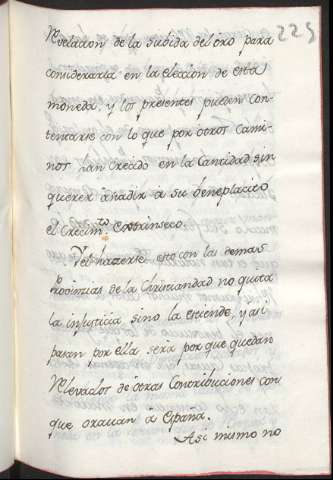 225
Rvelacion de la subida del oro para
considerarla en la eleccion de esta
moneda, y los presentes puedan con-
tentarse con lo que por otros Cami-
nos han Creado en la Cantidad sin
querer añadir a su beneplacito
el Crecim.to Extrinseco.
Y el hazerse esto con las demas
Provinzias de la Christiandad no quita
la injusticia sino la estiende, y asi
pasan por ella sera por que quedan
Relevados de otras Contribuciones con
que oravan à España.
Asi mismo no